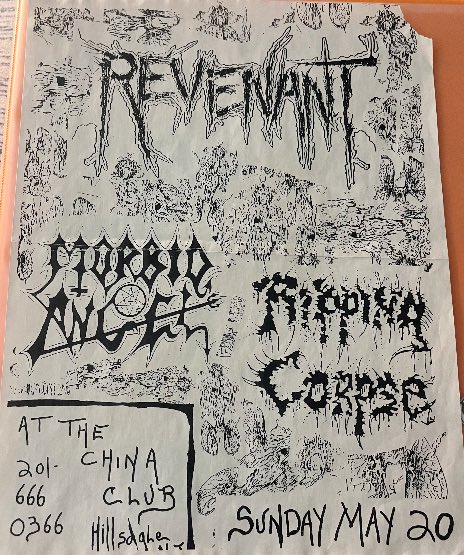 REVENANT
MORBID
ANGEL
RIPPING
CORPSE
AT THE
CHINA
CLUB
201-
666
0366
SUNDAY MAY 20